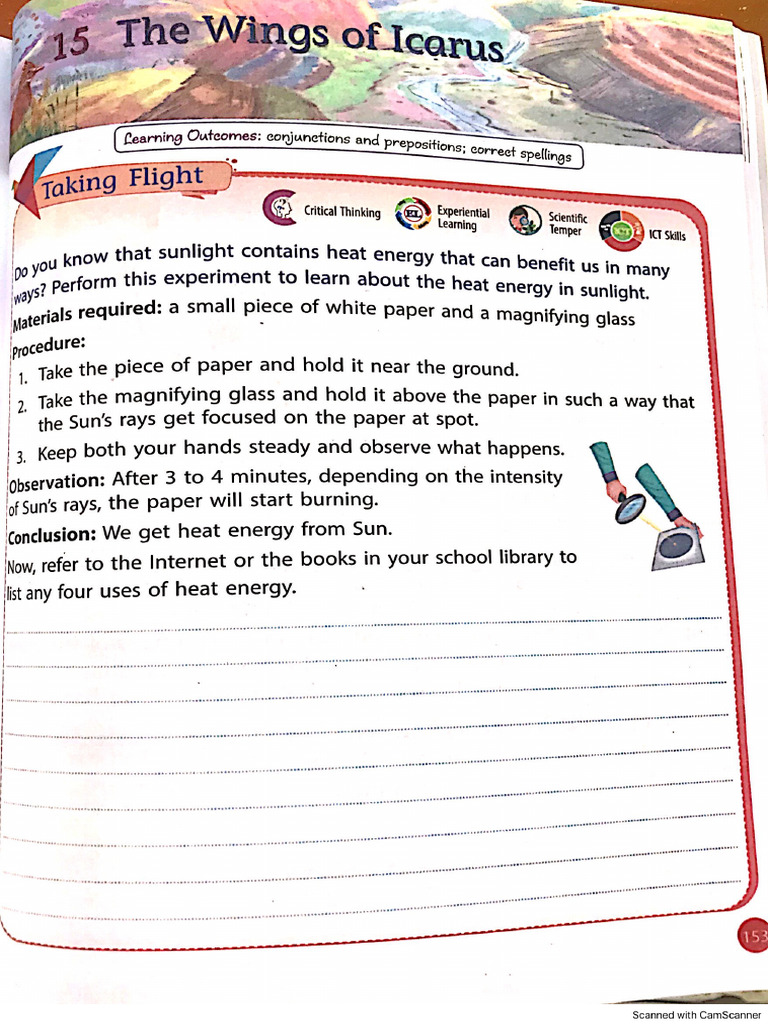 15 The Wings of Icarus
Learning Outcomes: conjunctions and prepositions; correct spellings
Taking Flight
Critical Thinking
Experiential
Learning
Scientific
Temper
ICT
ICT Skills
Do you know that sunlight contains heat energy that can benefit us in many
ways? Perform this experiment to learn about the heat energy in sunlight.
Materials required: a small piece of white paper and a magnifying glass
Procedure:
1. Take the piece of paper and hold it near the ground.
2. Take the magnifying glass and hold it above the paper in such a way that
the Sun's rays get focused on the paper at spot.
3. Keep both your hands steady and observe what happens.
Observation: After 3 to 4 minutes, depending on the intensity
of Sun's rays, the paper will start burning.
Conclusion: We get heat energy from Sun.
Now, refer to the Internet or the books in your school library to
list any four uses of heat energy.
153
Scanned with CamScanner